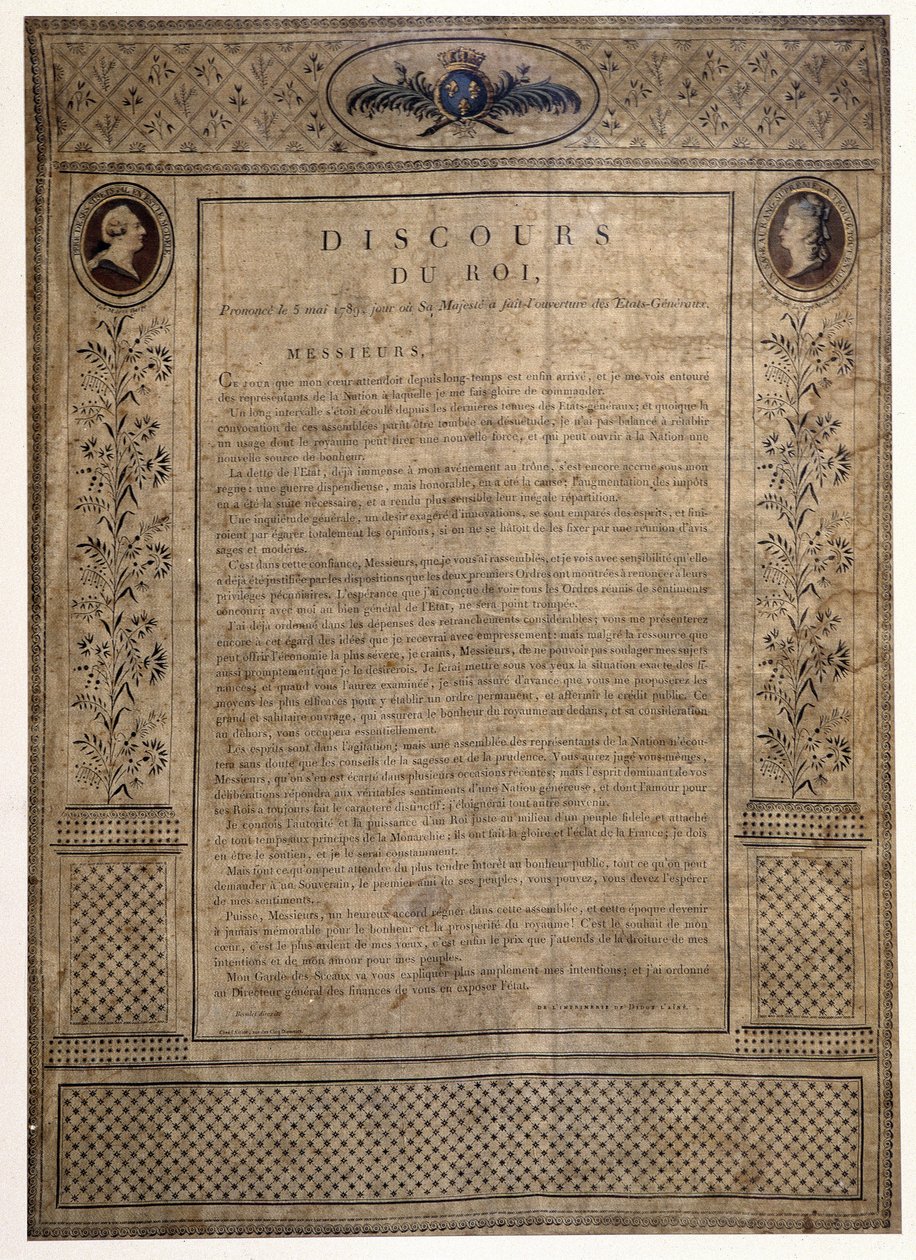 PERE DE SES SUJETS
DISCOURS
DU ROI,
Prononcé le 5 mai 1789, jour où Sa Majesté a fait l'ouverture des Etats-Généraux.
MESSIEURS,
CE JOUR que mon cœur attendoit depuis long-temps est enfin arrivé, et je me vois entouré
des représentants de la Nation à laquelle je me fais gloire de commander.
Un long intervalle s'étoit écoulé depuis les dernières tenues des Etats-généraux; et quoique la
convocation de ces assemblées parût être tombée en désuétude, je n'ai pas balancé à rétablir
un usage dont le royaume peut tirer une nouvelle force, et qui peut ouvrir à la Nation une
nouvelle source de bonheur.
La dette de l'Etat, déjà immense à mon avénement au trône, s'est encore accrue sous mon
regne: une guerre dispendieuse, mais honorable, en a été la cause; l'augmentation des impôts
en a été la suite nécessaire, et a rendu plus sensible leur inégale répartition.
Une inquiétude générale, un desir exagéré d'innovations, se sont emparés des esprits, et fini-
roient par égarer totalement les opinions, si on ne se hâtoit de les fixer par une réunion d'avis
sages et modérés.
C'est dans cette confiance, Messieurs, que je vous ai rassemblés, et je vois avec sensibilité qu'elle
a déjà été justifiée par les dispositions que les deux premiers Ordres ont montrées à renoncer à leurs
privileges pécuniaires. L'espérance que j'ai conçue de voir tous les Ordres réunis de sentiments
concourir avec moi au bien général de l'Etat, ne sera point trompée.
J'ai déjà ordonné dans les dépenses des retranchements considérables; vous me présenterez
encore à cet égard des idées que je recevrai avec empressement: mais malgré la ressource que
peut offrir l'économie la plus sévere, je crains, Messieurs, de ne pouvoir pas soulager mes sujets
aussi promptement que je le désirerois. Je ferai mettre sous vos yeux la situation exacte des fi-
nances; et quand vous l'aurez examinée, je suis assuré d'avance que vous me proposerez les
moyens les plus efficaces pour y établir un ordre permanent, et affermir le crédit public. Ce
grand et salutaire ouvrage, qui assurera le bonheur du royaume au dedans, et sa considération
au dehors, vous occupera essentiellement.
Les esprits sont dans l'agitation; mais une assemblée des représentants de la Nation n'écou-
tera sans doute que les conseils de la sagesse et de la prudence. Vous aurez jugé vous-mêmes,
Messieurs, qu'on s'en est écarté dans plusieurs occasions récentes; mais l'esprit dominant de vos
délibérations répondra aux véritables sentiments d'une Nation généreuse, et dont l'amour pour
ses Rois a toujours fait le caractere distinctif: j'éloignerai tout autre souvenir.
Je connois l'autorité et la puissance d'un Roi juste au milieu d'un peuple fidele et attaché
de tout temps aux principes de la Monarchie; ils ont fait la gloire et l'éclat de la France; je dois
en être le soutien, et je le serai constamment.
Mais tout ce qu'on peut attendre du plus tendre intérêt au bonheur public, tout ce qu'on peut
demander à un Souverain, le premier ami de ses peuples, vous pouvez, vous devez l'espérer
de mes sentiments.
Puisse, Messieurs, un heureux accord régner dans cette assemblée, et cette époque devenir
à jamais mémorable pour le bonheur et la prospérité du royaume! C'est le souhait de mon
cœur, c'est le plus ardent de mes vœux, c'est enfin le prix que j'attends de la droiture de mes
intentions et de mon amour pour mes peuples.
Mon Garde des Sceaux va vous expliquer plus amplement mes intentions; et j'ai ordonné
au Directeur général des finances de vous en exposer l'état.
DE L'IMPRIMERIE DE DIDOT L'AÎNÉ.